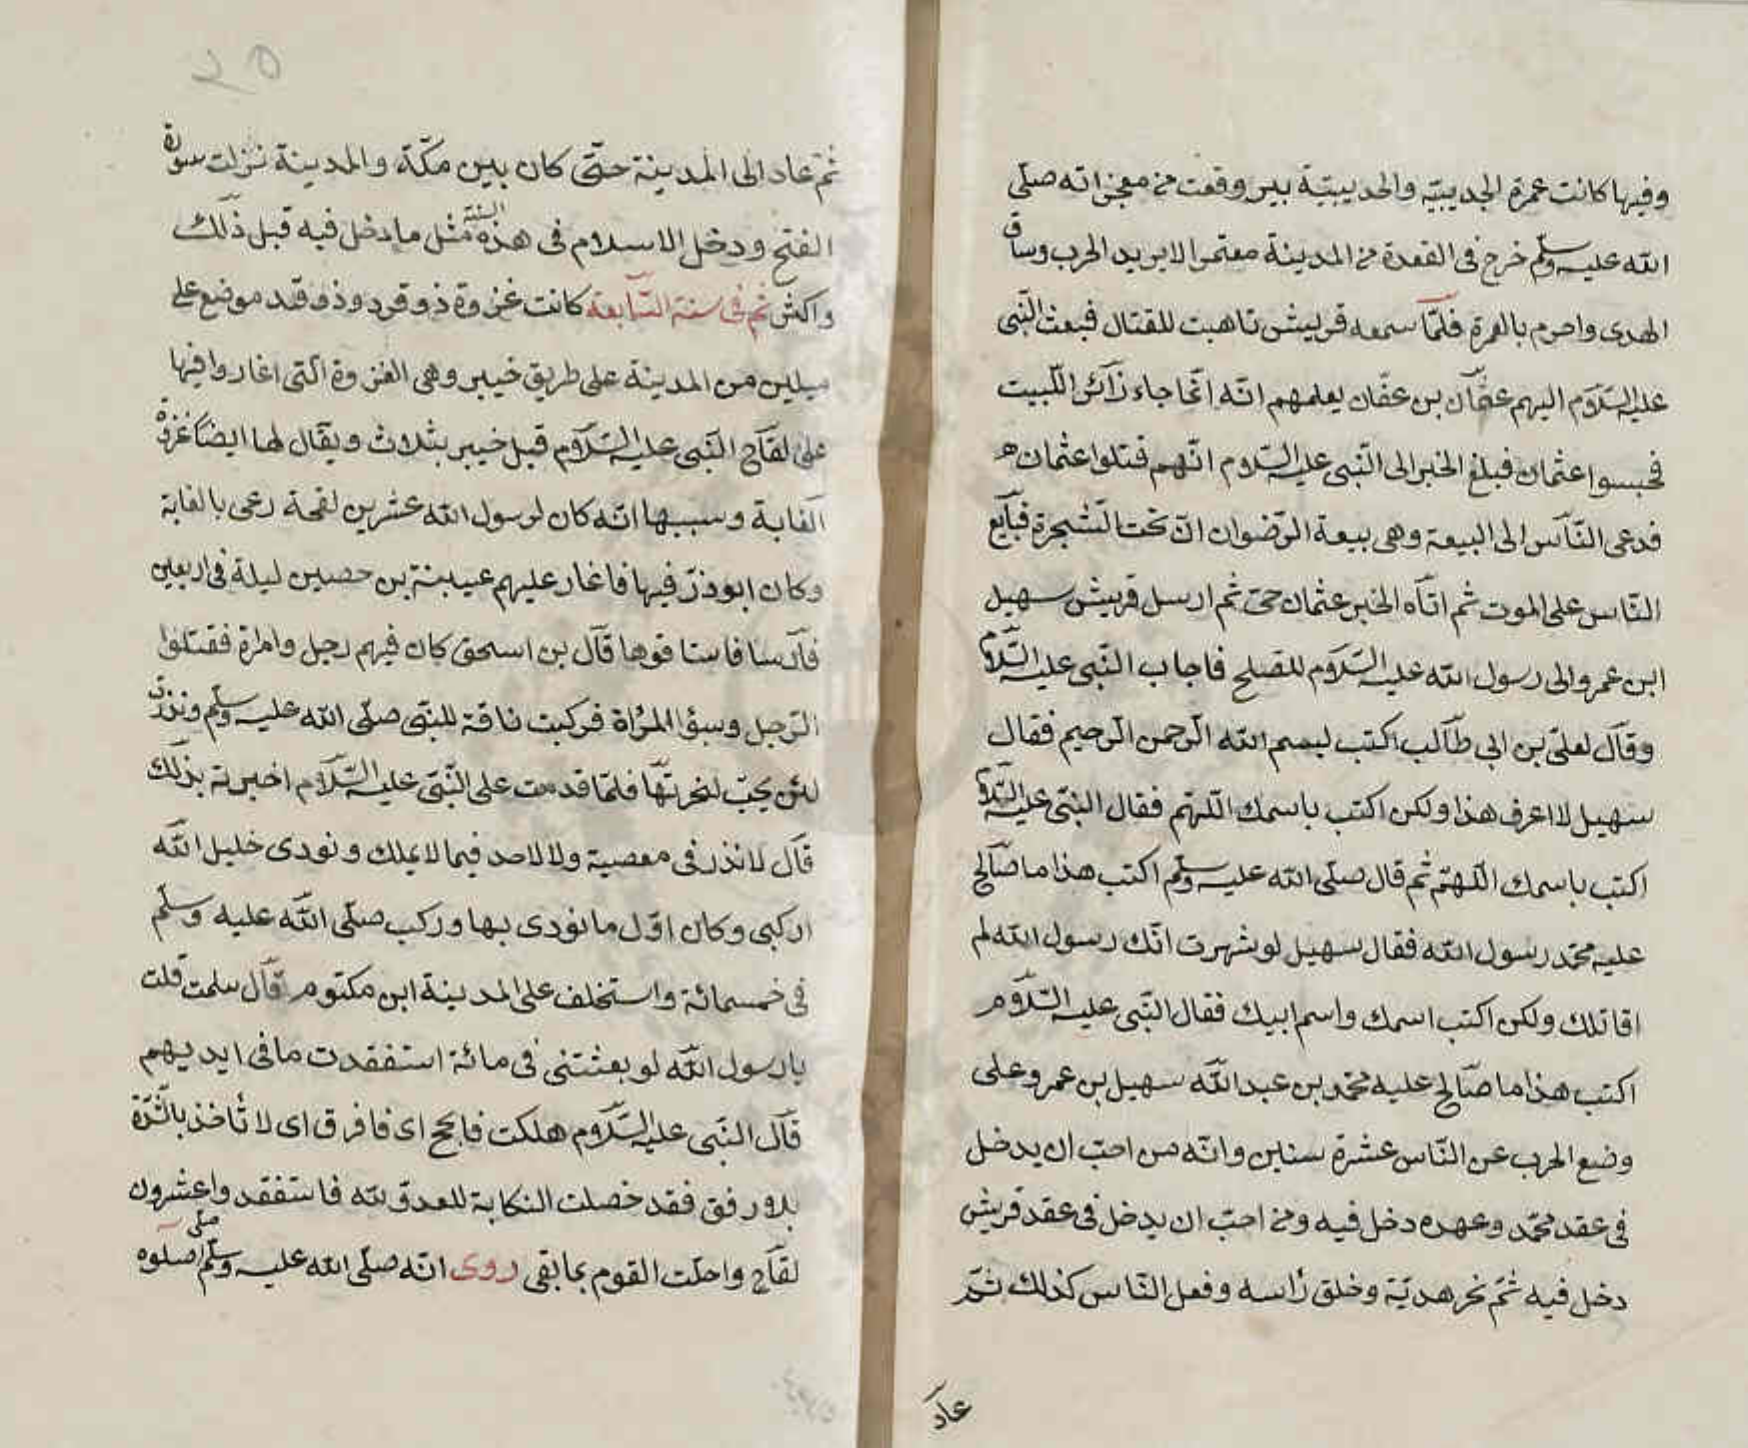 وفيها كانت عمرة الحديبيّه والحديبيّة بير وقعت من معجزاته صلّى
الله عليه وسلّم خرج فى القعدة من المدينة معتمرا لا يريد الحرب وساق
الهدى واحرم بالعمرة فلمّا سمعه قريش تاهبت للقتال فبعث النّبى
عليه السّلام اليهم عثمان بن عفّان يعلمهم انّه انّما جاء زآئر اللّبيت
فحبسوا عثمان فبلغ الخبر الى النّبى عليه السّلام انّهم قتلوا عثمان
فدعى النّاس الى البيعة وهى بيعة الرّضوان انّ تحت الشّجرة فبايع
النّاس على الموت ثم اتآه الخبر عثمان حىّ ثم ارسل قريش سهيل
ابن عمرو الى رسول الله عليه السّلام للصّلح فاجاب النّبى عليه السّلام
وقآل لعلىّ بن ابى طآلب اكتب لبسم الله الرّحمن الرّحيم فقال
سهيل لا اعرف هذا ولكن اكتب باسمك اللّهم فقال النبّى عليه السّلام
اكتب باسمك اللّهمّ ثم قال صلّى الله عليه وسلّم اكتب هذا ما صآلح
عليه محمّد رسول الله فقال سهيل لو شهرت انّك رسول الله لم
اقاتلك ولكن اكتب اسمك واسم ابيك فقال النّبى عليه السّلام
اكتب هذا ما صآلح عليه محمّد بن عبد الله سهيل بن عمرو على
وضع الحرب عن النّاس عشرة سنين وانّه من احبّ ان يدخل
فى عقد محمّد وعهده دخل فيه ومن احبّ ان يدخل فى عقد قريش
دخل فيه ثمّ نحر هديّة وخلق رأسه وفعل النّاس كذلك ثمّ
عاد
٢٥
ثم عاد الى المدينة حتّى كان بين مكّة والمدينة نزلت سورة
الفتح ودخل الاسلام فى هذه السنة مثل ما دخل فيه قبل ذلك
واكثر ثم فى سنة السّابعة كانت غزوة ذو قرد وذو قد موضع على
ميلين من المدينة على طريق خيبر وهى الغزوة الّتى اغاروا فيها
على لقآح النّبى عليه السّلام قبل خيبر بثلاث ويقال لها ايضا غزوة
الغابة وسببها انّه كان لرسول الله عشرين لقحة رعى بالغابة
وكان ابو ذرّ فيها فاغار عليهم عيينة بن حصين ليلة فى اربعين
فآرسا فاستاقوها قآل بن اسحق كان فيهم رجل وامرة فقتلوا
الرّجل وسبؤ المرأة فركبت ناقة للنبّى صلّى الله عليه وسلّم ونذرت
لئن نجت لنحرتّها فلمّا قدمت على النّبى عليه السّلام اخبرته بذلك
قآل لا نذر فى معصية ولا لاحد فيما لا يملك ونودى خليل الله
اركبى وكان اوّل ما نودى بها وركب صلّى الله عليه وسلّم
فى خمسمائة واستخلف على المدينة ابن مكتوم قآل سلمت قلت
يا رسول الله لو بعثتنى فى مائة استفقدت ما فى ايديهم
قآل النّبى عليه السّلام هلكت فابحح اى فافرق اى لا تأخذ بالشّدّة
بلا ورفق فقد خصلت النكابة للعدوّ لله فاستفقد واعشرون
لقآح واحلّت القوم بما بقى روى انّه صلّى الله عليه وسلّم صلّى صلوة